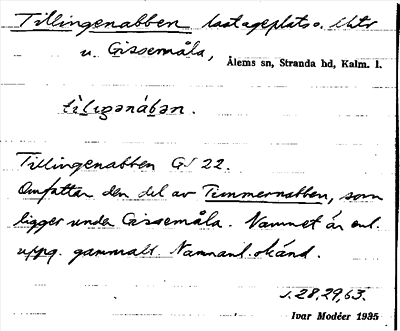 Tillingenabben lastageplats o.
u. Gissemåla,
Ålems sn, Stranda hd, Kalm. l.
tìlıgənábən.
Tillingenabben GS 22.
Omfattar den del av Timmernabben, som
ligger under Gissemåla. Namnet är enl.
uppg. gammalt. Namnanl. okänd.
s. 28, 29, 63.
Ivar Modéer 1935